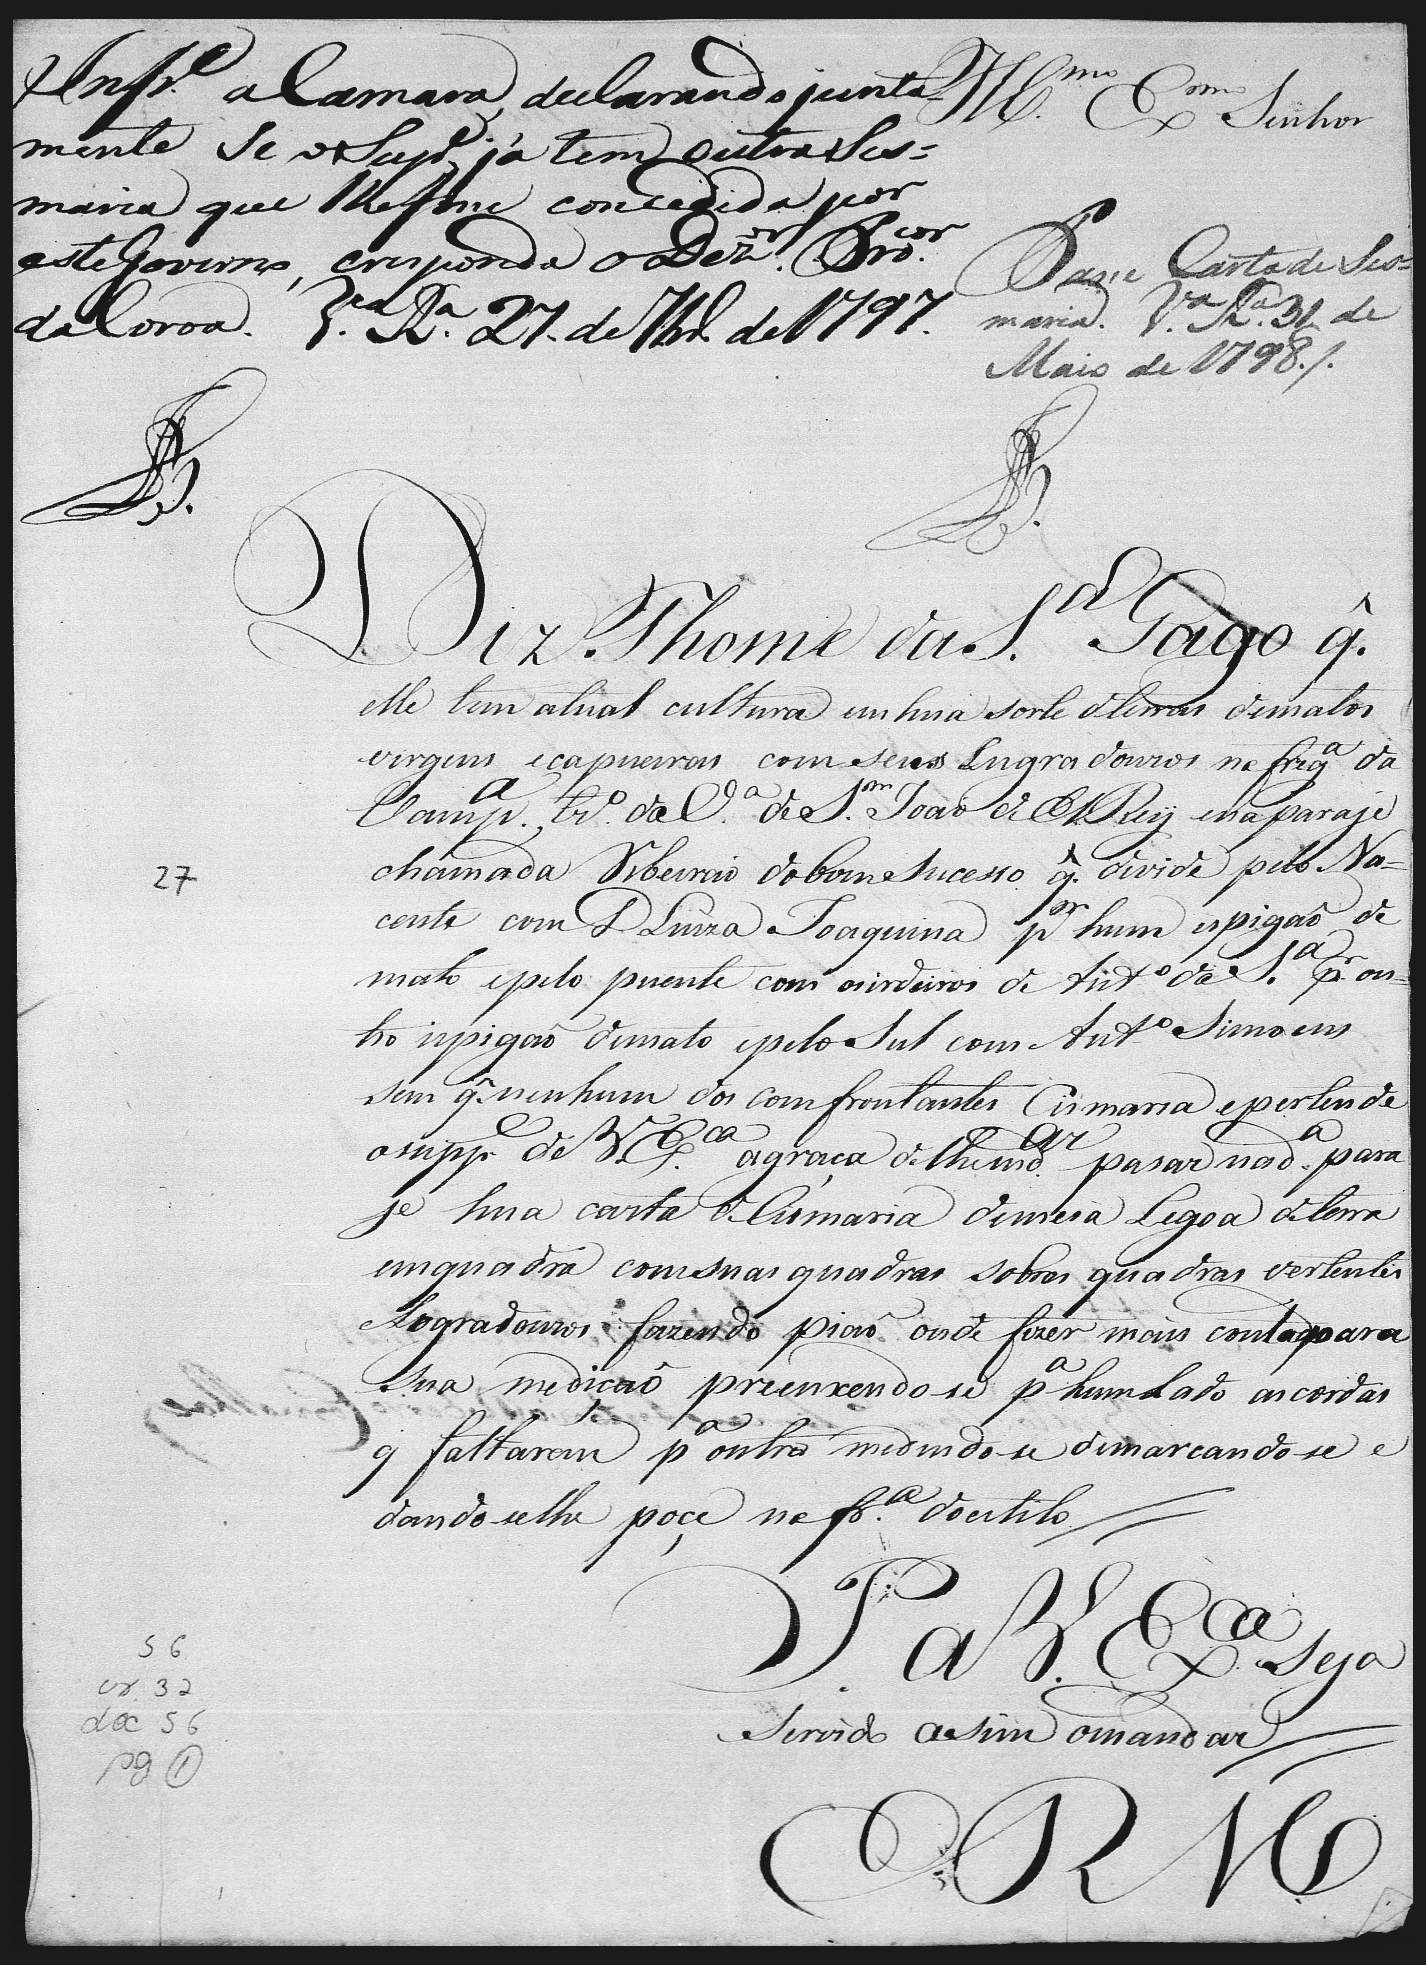 Infe. a Camara, declarando junta=
mente se o Supe. já tem outra Ses=
maria que lhe fosse concedida por
este Governo, e responda o Dezor. Procor.
da Coroa. Va. Ra. 27. de 7br. de 1797.
Illmo. Exmo Senhor
Passe Carta de Ses=
maria. Va. Ra. 31 de
Maio de 1798./.
Diz Thome da Sa. Gago q̂.
elle tem atual cultura em hua sorte de terras de matos
virgens e capueiras com seus Lugradouros na frega da
Campa., tro. da Va. de Sm. Joao de El Rey e na paraje
chamada Ribeirão do bom sucesso q̂. divide pelo Na=
cente com D Luiza Joaquina pr hum espigaõ de
mato e pelo puente com os irdeiros de Anto. da Sa. pr. ou=
tro ispigaõ de mato e pelo Sul com Anto. Simoens
sem q̂. nenhum dos comfrontantes Cismaria e pertende
o suppe. de V. Exca. a graça de lhe mdar. pasar na da. para
je hua carta de Cismaria de meia Legoa de terra
em quadra com suas quadras sobras quadras vertentes
Logradouros fazendo piaõ onde fazer mais conta para
sua mediçaõ preenxendo-se pa hum lado as cordas
q faltarem pa outro medindo-se demarcando-se e
dandoselhe poçe na fra. do estilo
P. a V. Exca. Seja
Servido asim o mandar
E R Mce
27
56
cx. 32
doc 56
pg 1